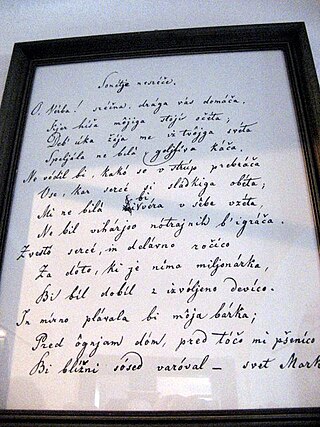 Sonétje nesreče.
O, Vérba! sréčna, draga vás domača,
Kjer hiša mojiga stoji očéta;
Deb' úka žéja me iz tvojga svéta
Speljála ne bilà goljfiva káča.
Ne védil bi, kakó se v strup prebráča
Vse, kar sercé si sládkiga obéta;
Mi ne bilà bi vera v sébe vzéta,
Ne bil vihárjov nótrajnih b' igráča.
Zvestó sercé, in délavno ročíco
Za dóto, ki je níma miljonárka,
Bi bil dobíl z izvoljeno devíco.
In mírno plávala bi mója bárka;
Pred ógnjam dóm, pred tóčo mi pšeníco
Bi blížni sósed varóval — svet Mark